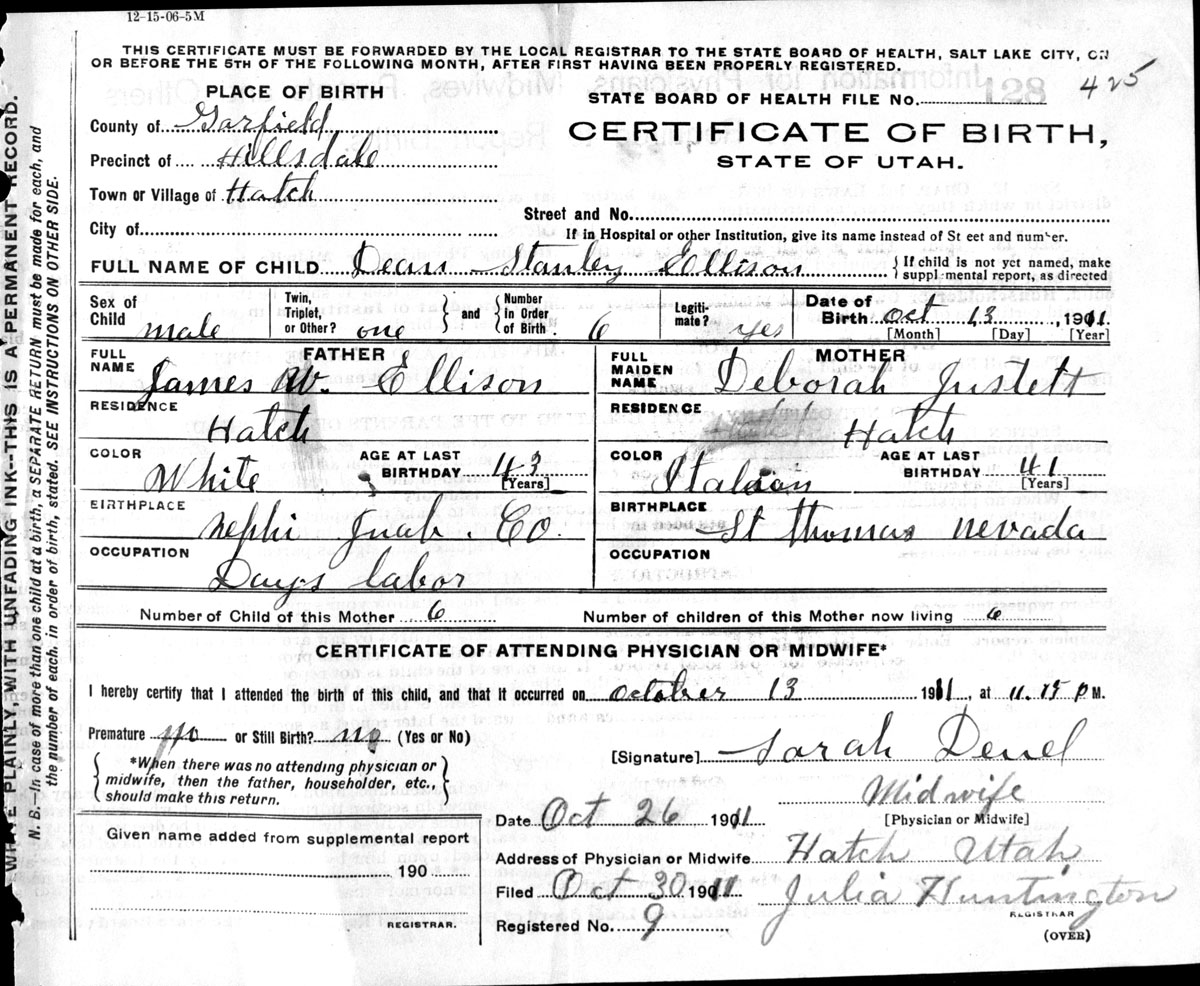 12-15-06-5M
THIS CERTIFICATE MUST BE FORWARDED BY THE LOCAL REGISTRAR TO THE STATE BOARD OF HEALTH, SALT LAKE CITY, ON
OR BEFORE THE 5TH OF THE FOLLOWING MONTH, AFTER FIRST HAVING BEEN PROPERLY REGISTERED.
WRITE PLAINLY, WITH UNFADING INK--THIS IS A PERMANENT RECORD.
N. B.—In case of more than one child at a birth, a SEPARATE RETURN must be made for each, and
the number of each, in order of birth, stated. SEE INSTRUCTIONS ON OTHER SIDE.
PLACE OF BIRTH
County of Garfield
Precinct of Hillsdale
Town or Village of Hatch
City of
STATE BOARD OF HEALTH FILE No. 128 425
CERTIFICATE OF BIRTH,
STATE OF UTAH.
Street and No.
If in Hospital or other Institution, give its name instead of St eet and number.
FULL NAME OF CHILD Dean Stanley Ellison
If child is not yet named, make
suppl-mental report, as directed
Sex of Child male
Twin, Triplet, or Other? one
and
Number in Order of Birth 6
Legiti-mate? Yes
Date of Birth Oct 13, 1911
[Month] [Day] [Year]
FATHER
FULL NAME James W. Ellison
RESIDENCE Hatch
COLOR White
AGE AT LAST BIRTHDAY 43
[Years]
BIRTHPLACE Nephi Juab. Co.
OCCUPATION Days labor
MOTHER
FULL MAIDEN NAME Deborah Justett
RESIDENCE Hatch
COLOR Italian
AGE AT LAST BIRTHDAY 41
[Years]
BIRTHPLACE St Thomas Nevada
OCCUPATION
Number of Child of this Mother 6
Number of children of this Mother now living 6
CERTIFICATE OF ATTENDING PHYSICIAN OR MIDWIFE*
I hereby certify that I attended the birth of this child, and that it occurred on October 13 1911, at 11.15 P M.
Premature No or Still Birth? no (Yes or No)
*When there was no attending physician or
midwife, then the father, householder, etc.,
should make this return.
[Signature] Sarah Deuel
Midwife
[Physician or Midwife]
Date Oct 26 1911
Address of Physician or Midwife Hatch Utah
Filed Oct 30 1911
Julia Huntington
REGISTRAR
Registered No. 9
(OVER)
Given name added from supplemental report
190
REGISTRAR.